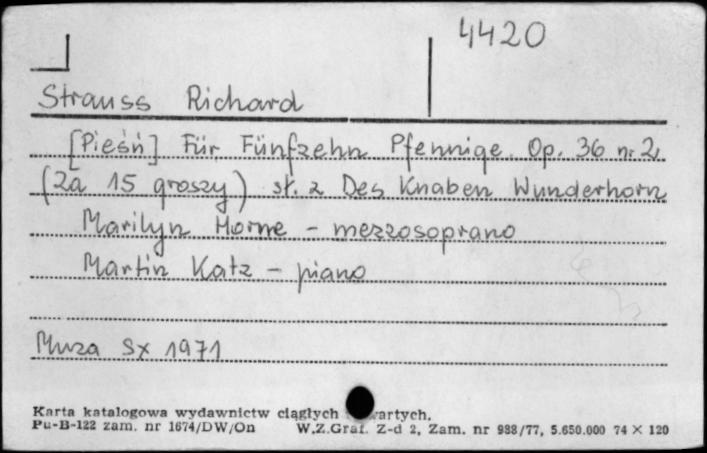 4420
Strauss Richard
[Pieśń] Für Fünfzehn Pfennige. Op. 36 nr 2.
(Za 15 groszy) sł. z Des Knaben Wunderhorn
Marilyn Horne - mezzosoprano
Martin Katz - piano
Muza SX 1971
Karta katalogowa wydawnictw ciągłych wartych.
Pu-B-122 zam. nr 1674/DW/On W.Z.Graf. Z-d 2, Zam. nr 988/77, 5.650.000 74 × 120